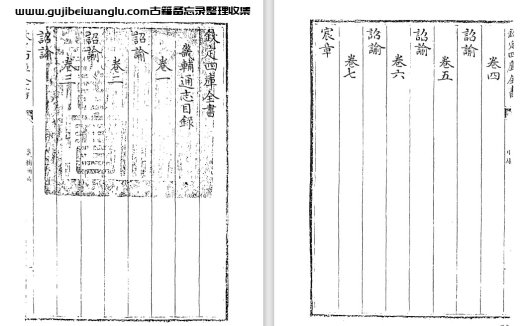 www.gujibeiwanglu.com古籍备忘录整理收集
欽定四庫全書
畿輔通志目録
卷一
詔諭
卷二
詔諭
卷三
詔諭
欽定四庫全書
卷四
詔諭
卷五
詔諭
卷六
詔諭
卷七
宸章